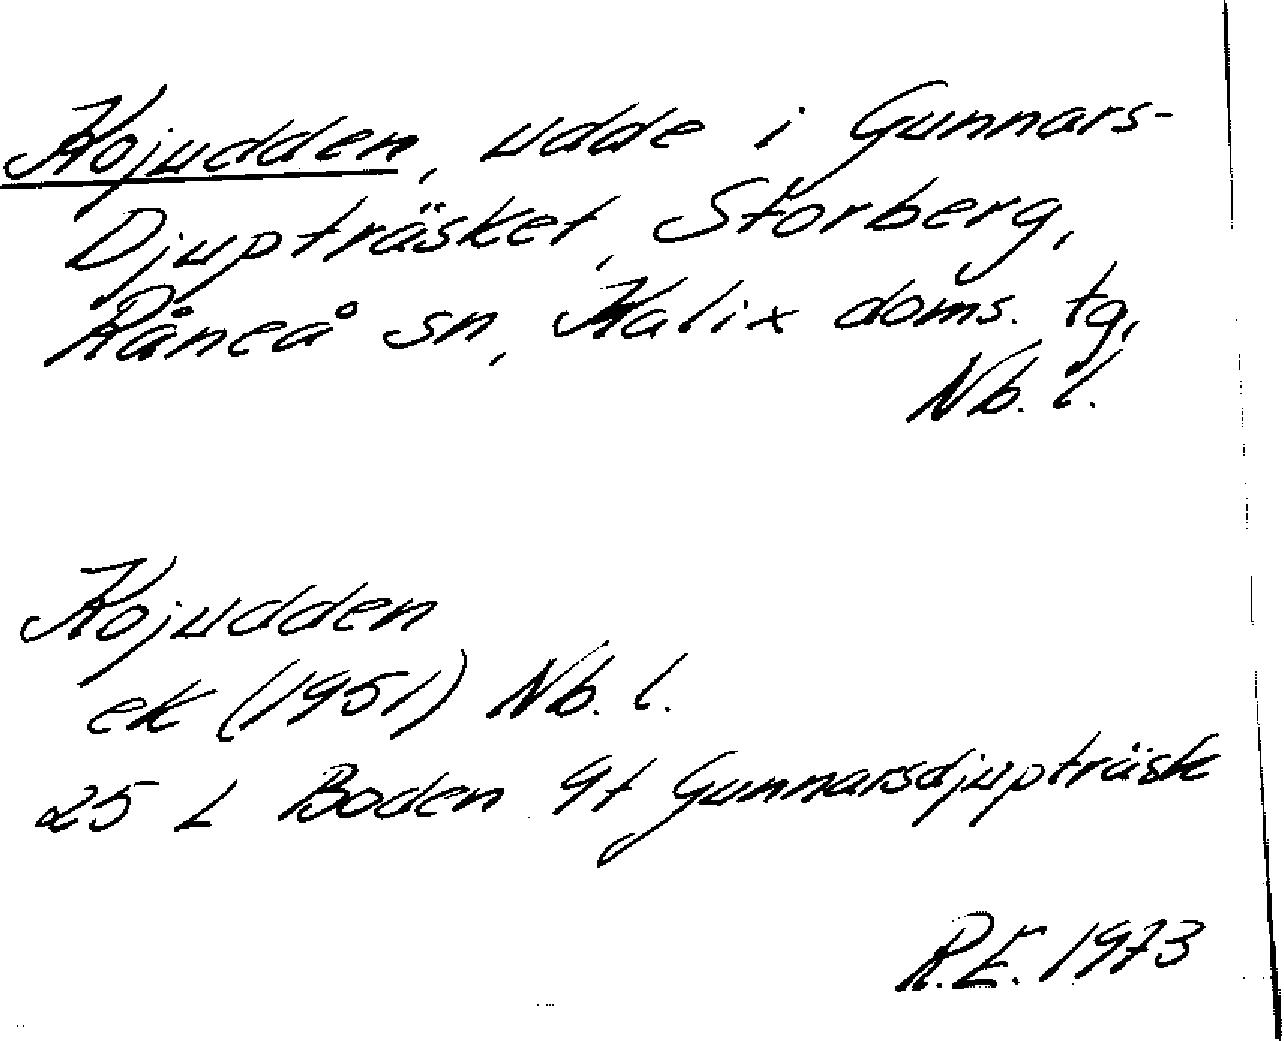 Kojudden, udde i Gunnars-
Djupträsket, Storberg,
Råneå sn, Kalix doms. tg,
Nb. l.
Kojudden
ek (1951) Nb. l.
25 L Boden 9f Gunnarsdjupträsk
R.E. 1973